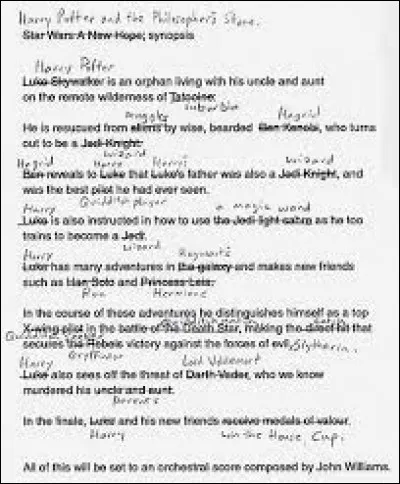 Harry Potter and the Philosopher's Stone.
Star Wars: A New Hope; synopsis
Harry Potter
Luke Skywalker is an orphan living with his uncle and aunt
on the remote wilderness of Tatooine.
muggles suburbia
Hagrid
He is resucued from aliens by wise, bearded Ben Kenobi, who turns
out to be a Jedi Knight.
wizard
Hagrid Harry Harry's wizard
Ben reveals to Luke that Luke's father was also a Jedi Knight, and
was the best pilot he had ever seen.
Harry Quidditch player a magic wand
Luke is also instructed in how to use the Jedi light sabre as he too
trains to become a Jedi.
wizard
Harry Hogwarts
Luke has many adventures in the galaxy and makes new friends
such as Han Solo and Princess Leia.
Ron Hermione
In the course of these adventures he distinguishes himself as a top
X-wing pilot in the battle of the Death Star, making the direct hit that
Quidditch catch
secures the Rebels victory against the forces of evil. Slytherin.
Gryffindor
Harry Lord Voldemort
Luke also sees off the threat of Darth Vader, who we know
murdered his uncle and aunt.
parents
In the finale, Luke and his new friends receive medals of valour.
Harry win the House Cup.
All of this will be set to an orchestral score composed by John Williams.